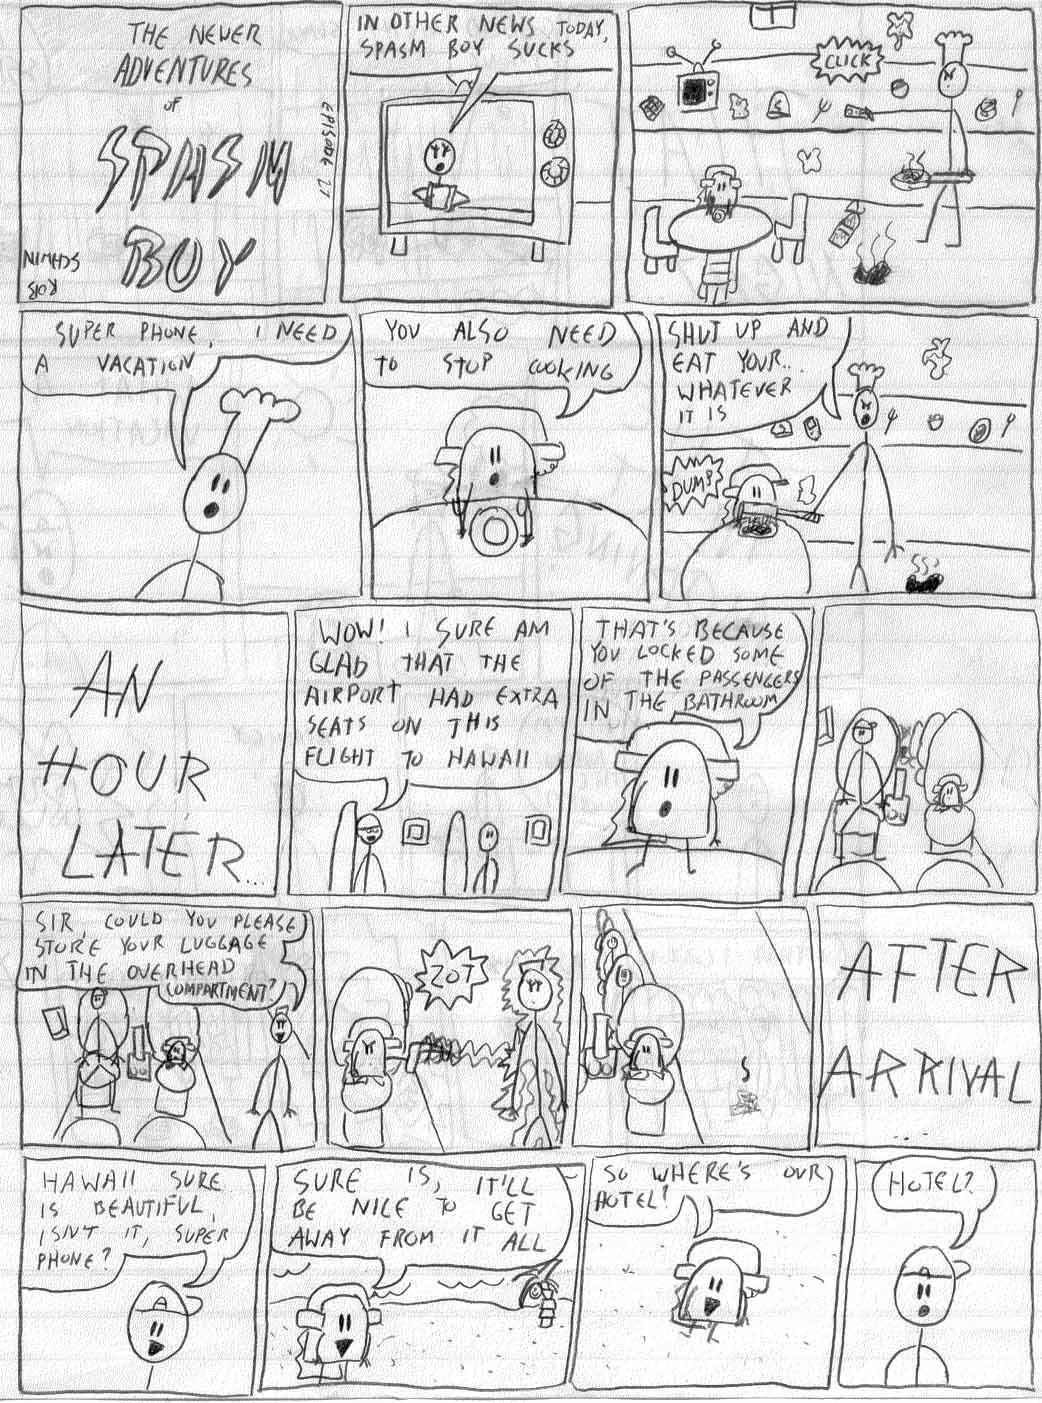 THE NEWER
ADVENTURES
OF
SPASM
BOY
EPISODE 27
ROB
SCHWIN
IN OTHER NEWS TODAY,
SPASM BOY SUCKS
CLICK
SUPER PHONE, I NEED
A VACATION
YOU ALSO NEED
TO STOP COOKING
SHUT UP AND
EAT YOUR...
WHATEVER
IT IS
DUMP
AN
HOUR
LATER...
WOW! I SURE AM
GLAD THAT THE
AIRPORT HAD EXTRA
SEATS ON THIS
FLIGHT TO HAWAII
THAT'S BECAUSE
YOU LOCKED SOME
OF THE PASSENGERS
IN THE BATHROOM
SIR, COULD YOU PLEASE
STORE YOUR LUGGAGE
IN THE OVERHEAD
COMPARTMENT?
ZOT
AFTER
ARRIVAL
...
HAWAII SURE
IS BEAUTIFUL,
ISN'T IT, SUPER
PHONE?
SURE IS, IT'LL
BE NICE TO GET
AWAY FROM IT ALL
SO WHERE'S OUR
HOTEL?
HOTEL?